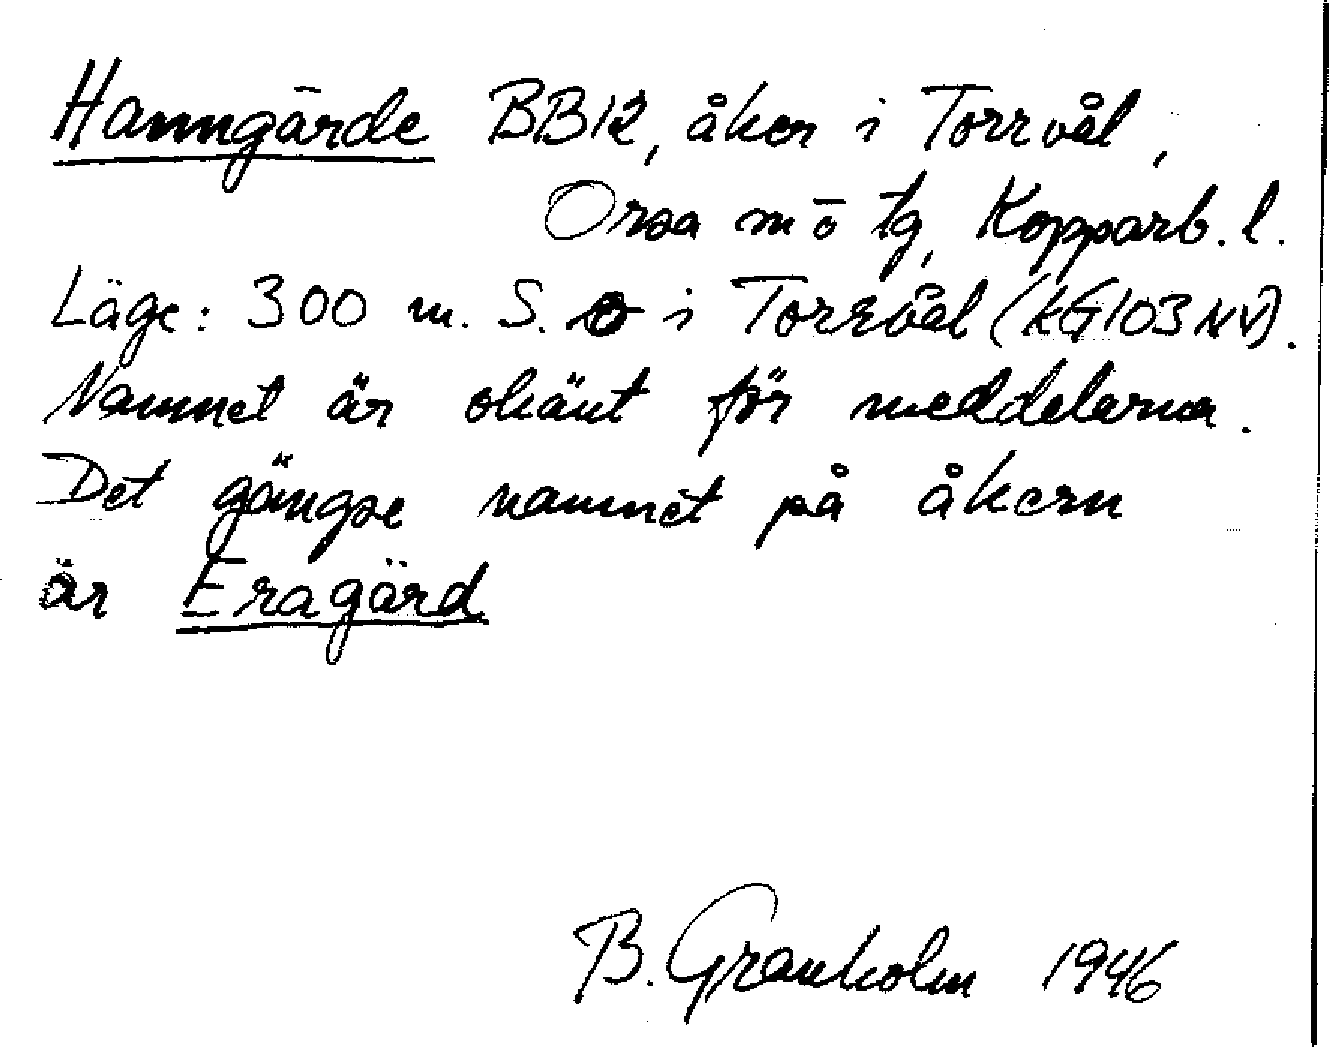 Hanngärde BBK, åker i Torrvål,
Orsa m o tg, Kopparb. l.
Läge: 300 m. S. o i Torrvål (KG103NV).
Namnet är okänt för meddelarna.
Det gängse namnet på åkern
är Eragärd
B. Granholm 1946